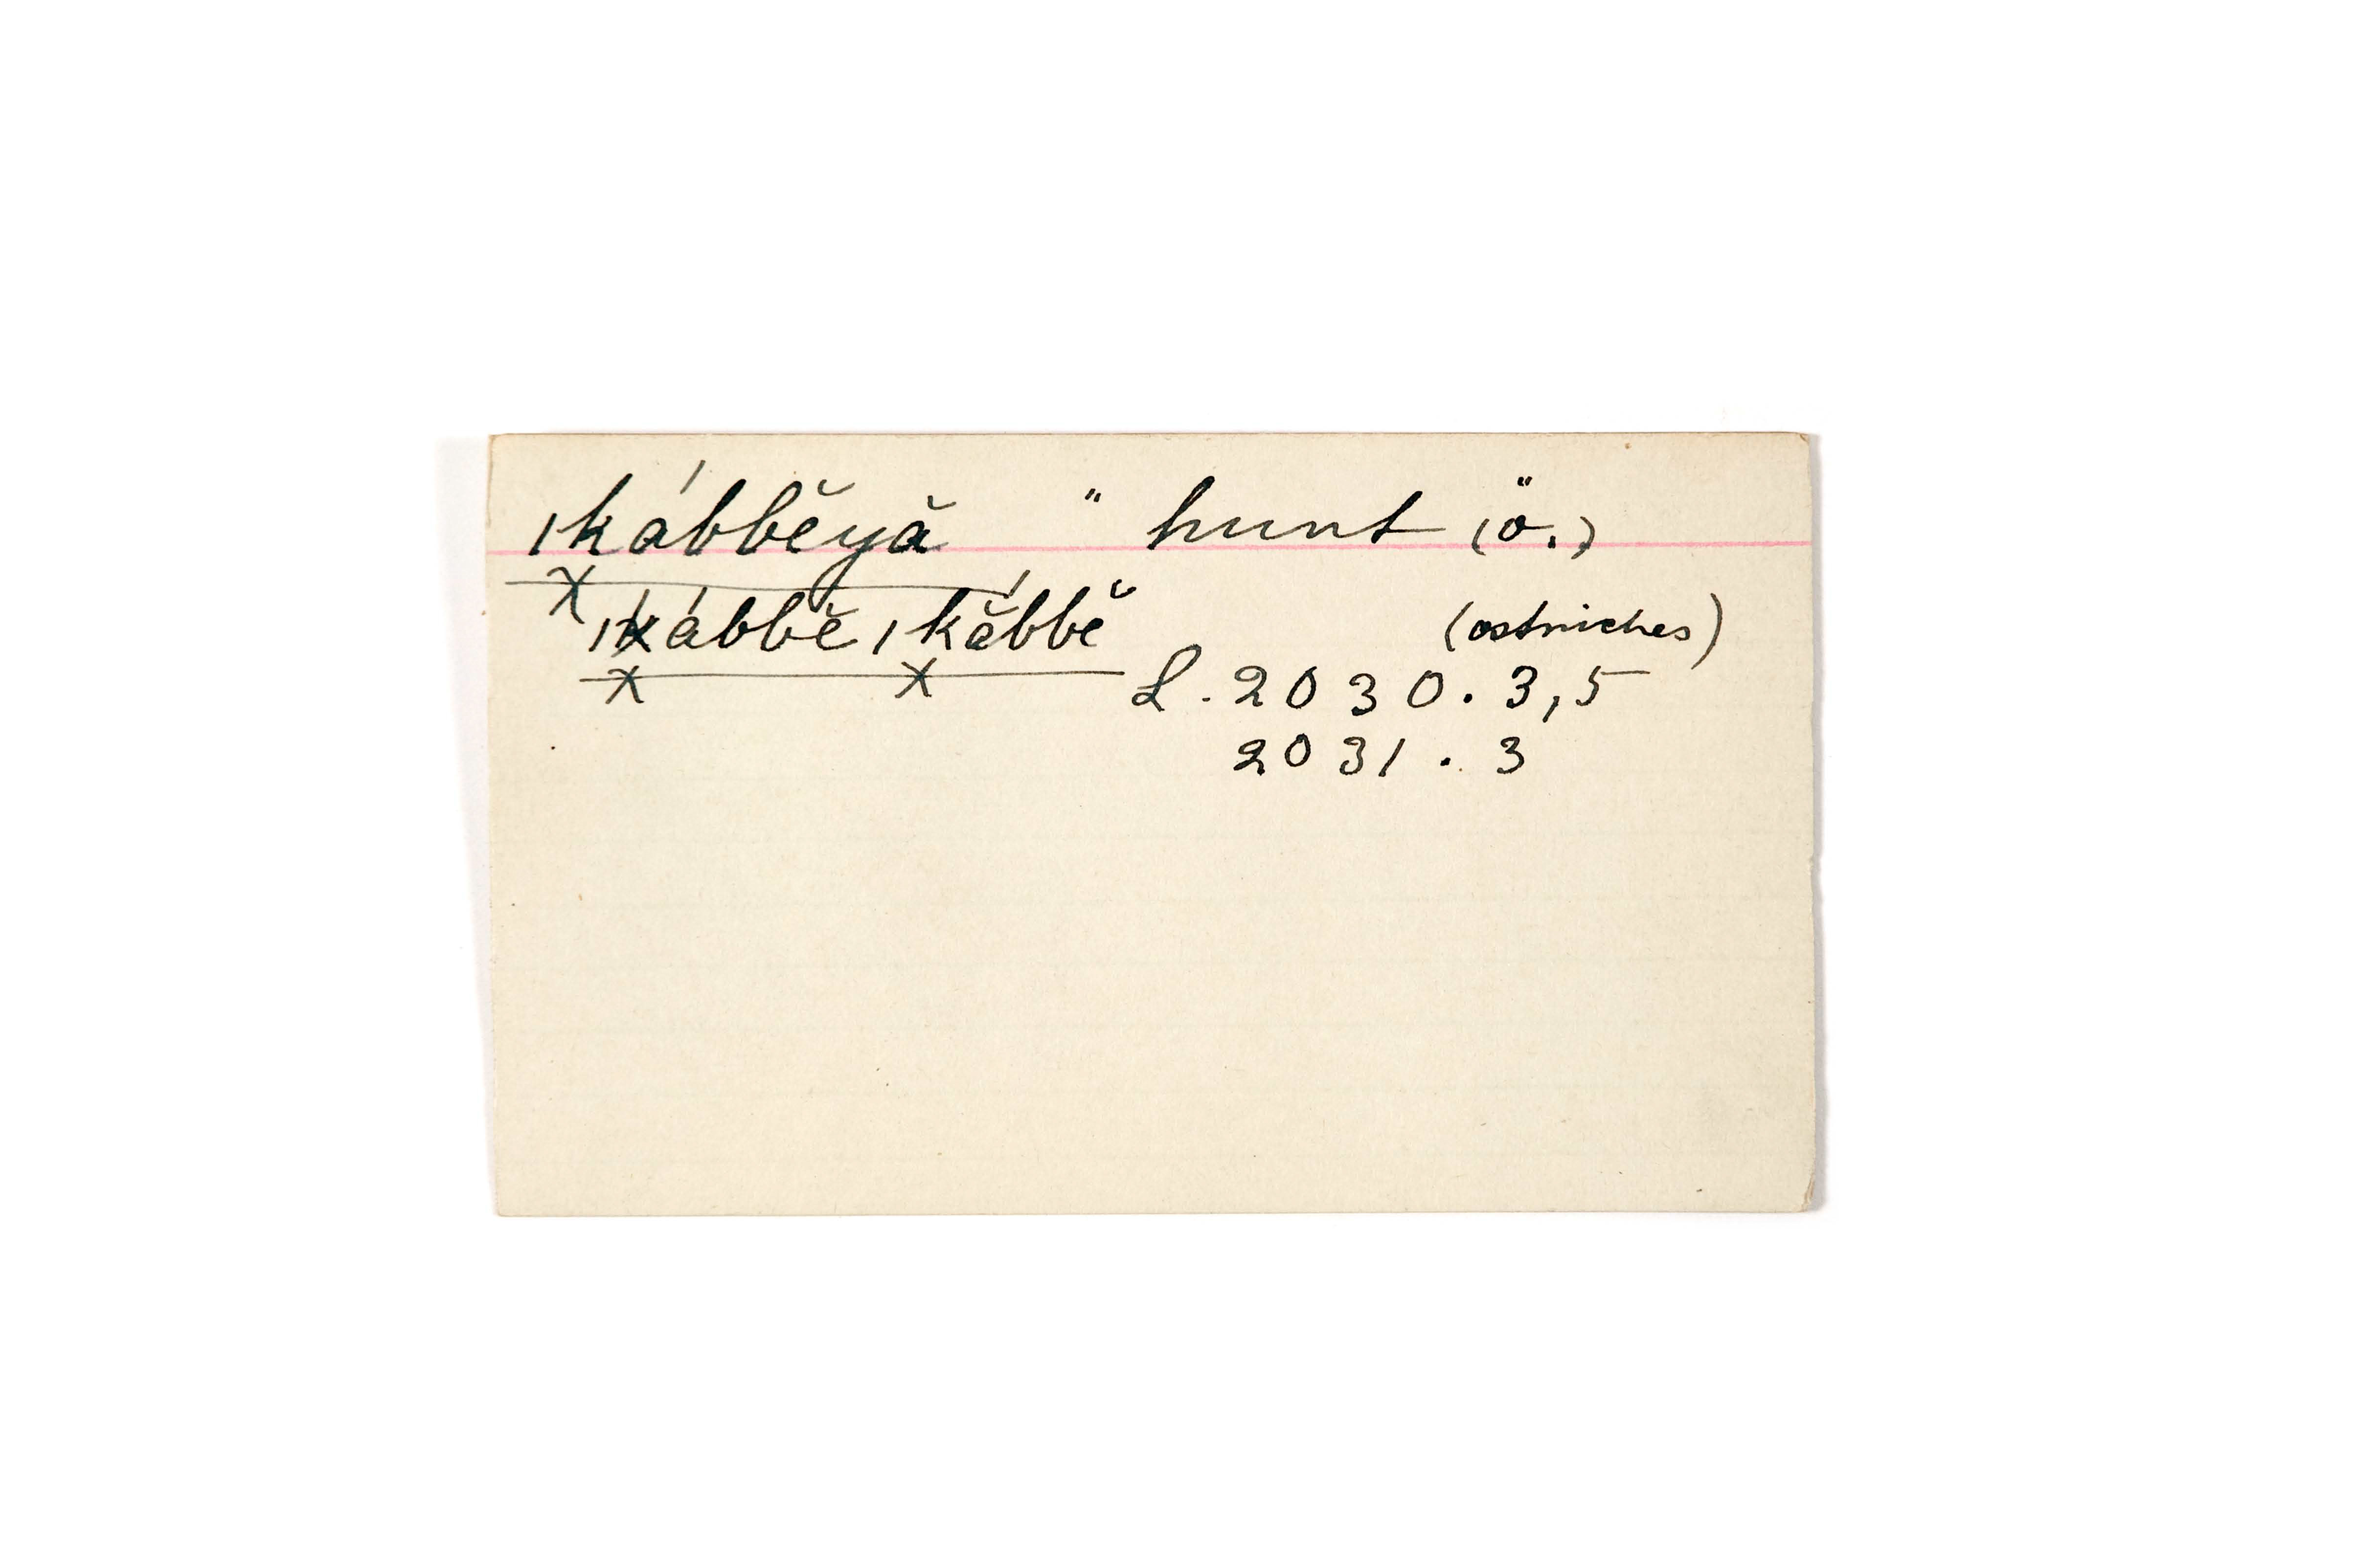 ǀkábbĕyă " hunt (ö.)
ǀkábbĕ ǀkắbbĕ (ostriches)
L. 2030. 3,5
2031. 3